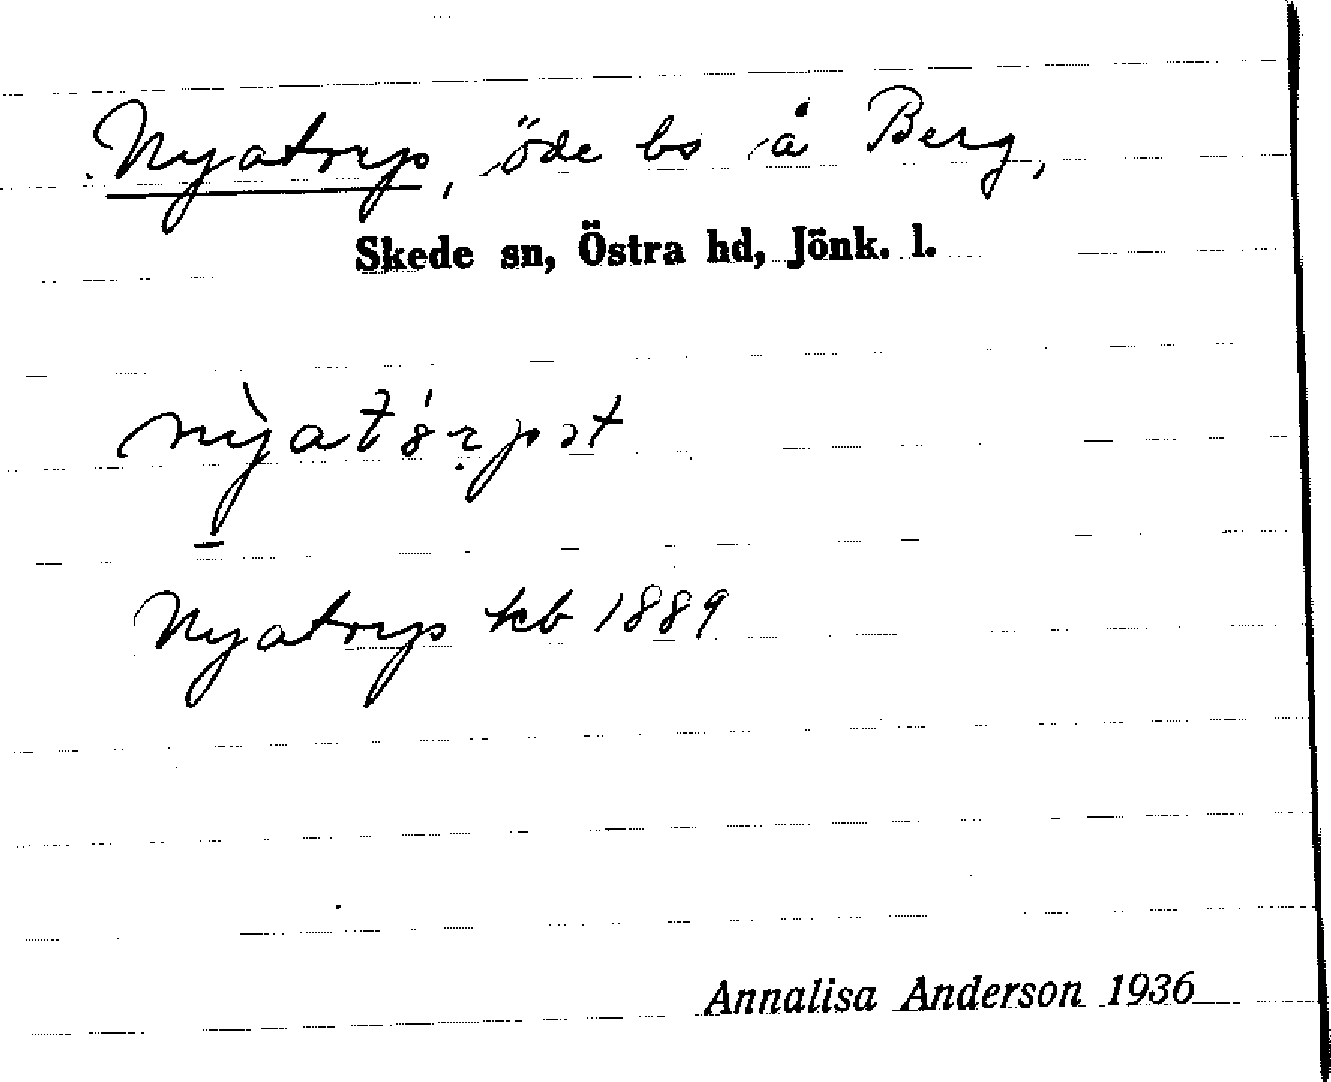 Nyatryp, öde bs å Berg,
Skede sn, Östra hd, Jönk. l.
Nyatryp kb 1889
Annalisa Anderson 1936